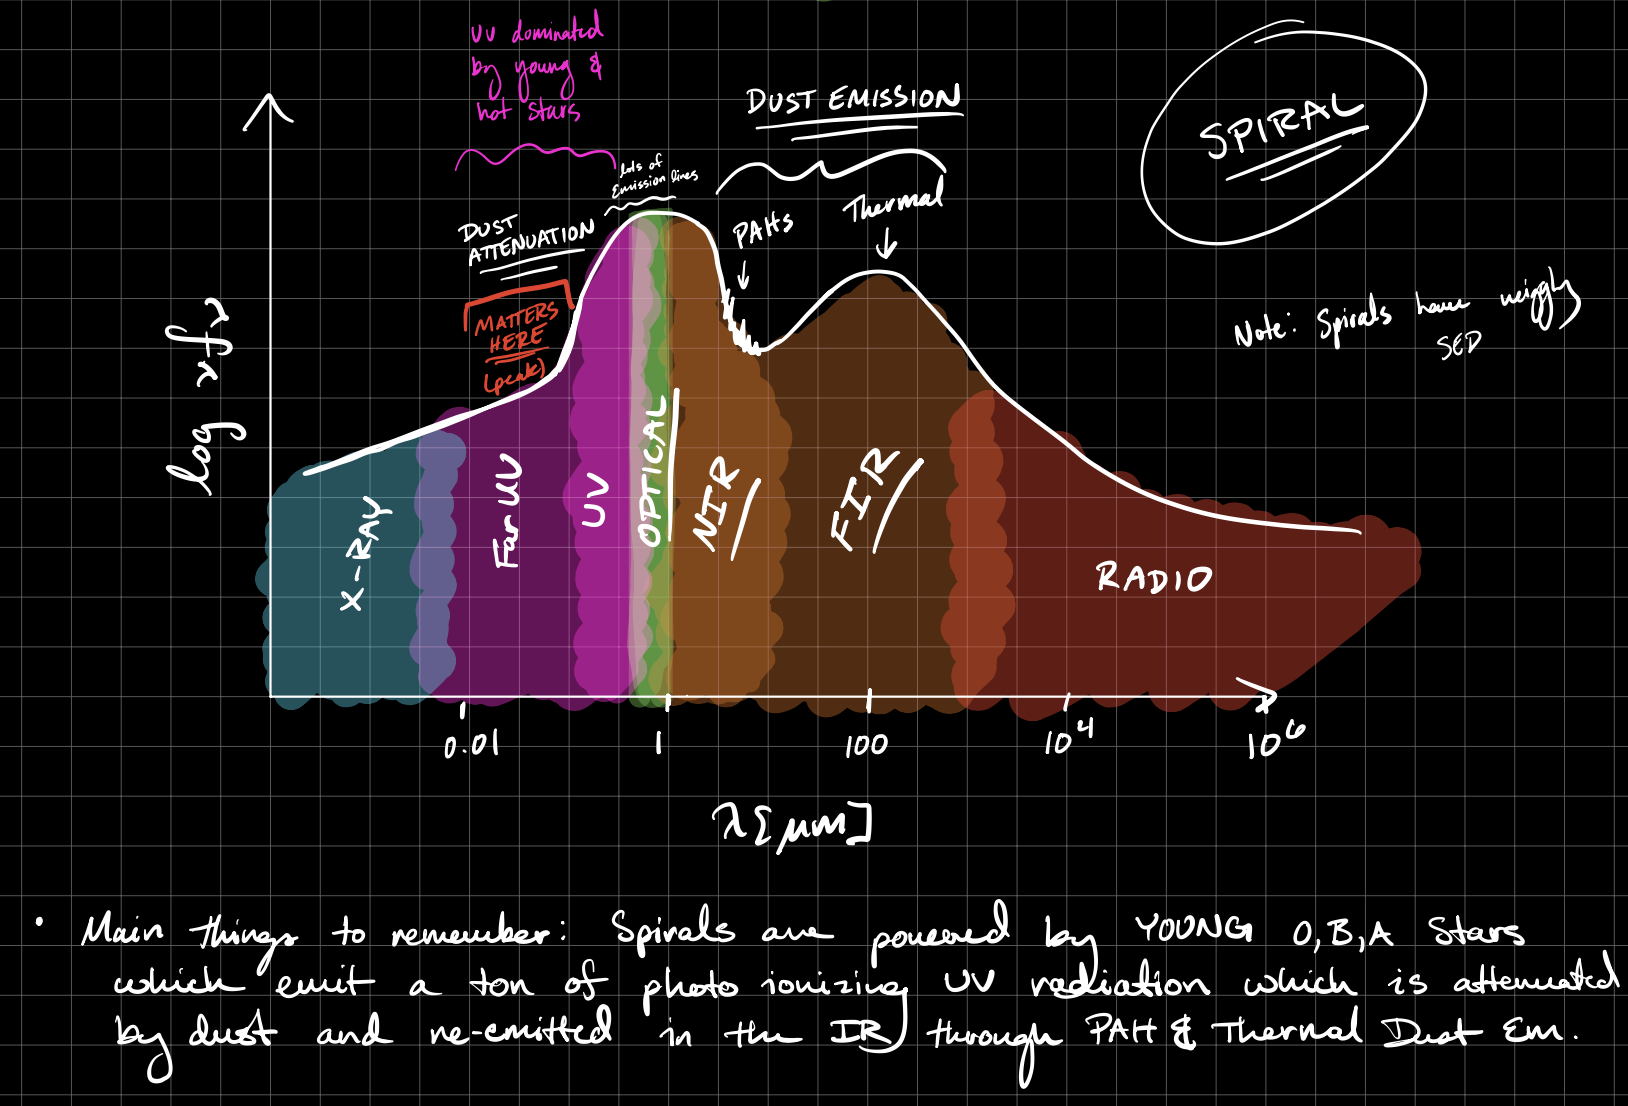 UV dominated
by young &
hot stars
DUST EMISSION
SPIRAL
lots of
Emission lines
DUST
ATTENUATION
PAHs
Thermal
MATTERS
HERE
(peak)
Note: Spirals have
SED
log νfν
X-RAY
Far UV
UV
OPTICAL
NIR
FIR
RADIO
0.01 1 100 10⁴ 10⁶
λ[μm]
• Main things to remember: Spirals are powered by YOUNG O,B,A Stars
which emit a ton of photo ionizing UV radiation which is attenuated
by dust and re-emitted in the IR through PAH & Thermal Dust Em.